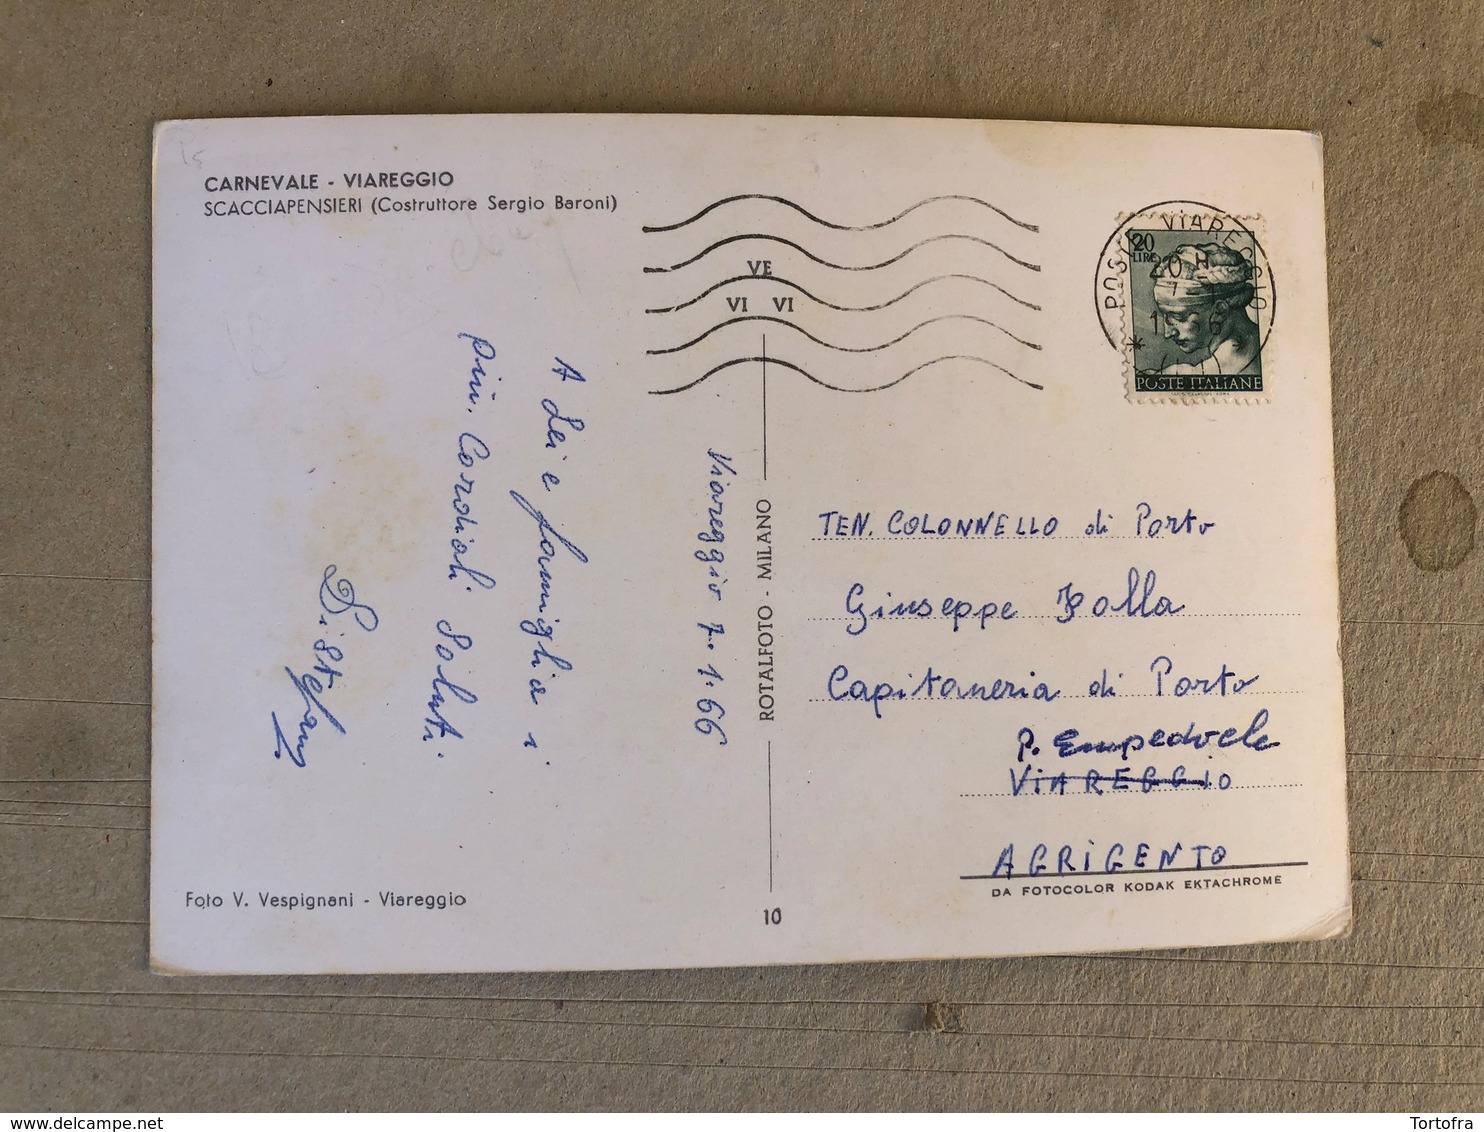 CARNEVALE - VIAREGGIO
SCACCIAPENSIERI (Costruttore Sergio Baroni)
A Lei e famiglia i
più. Cordiali Saluti.
Di Stefano
Viareggio 7.1.66
Foto V. Vespignani - Viareggio
VE
VI VI
ROTALFOTO - MILANO
10
POSTE VIAREGGIO
20 H
20
LIRE
POSTE ITALIANE
TEN. COLONNELLO di Porto
Giuseppe Folla
Capitaneria di Porto
P. Empedocle
VIAREGGIO
AGRIGENTO
DA FOTOCOLOR KODAK EKTACHROME
Tortofra